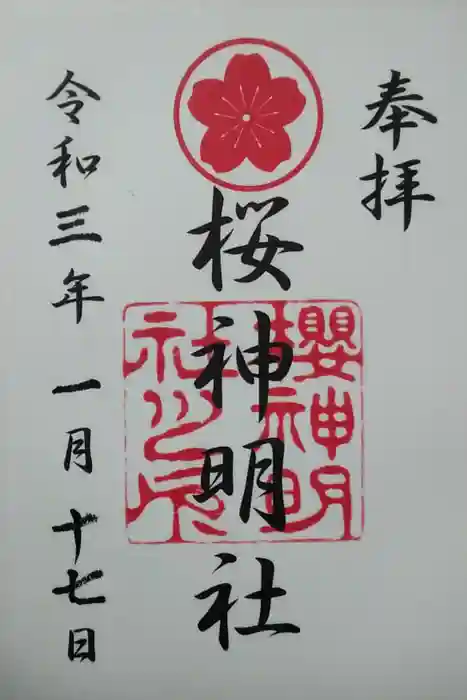 奉拝
桜神明社
櫻神明
社之印
令和三年一月十七日